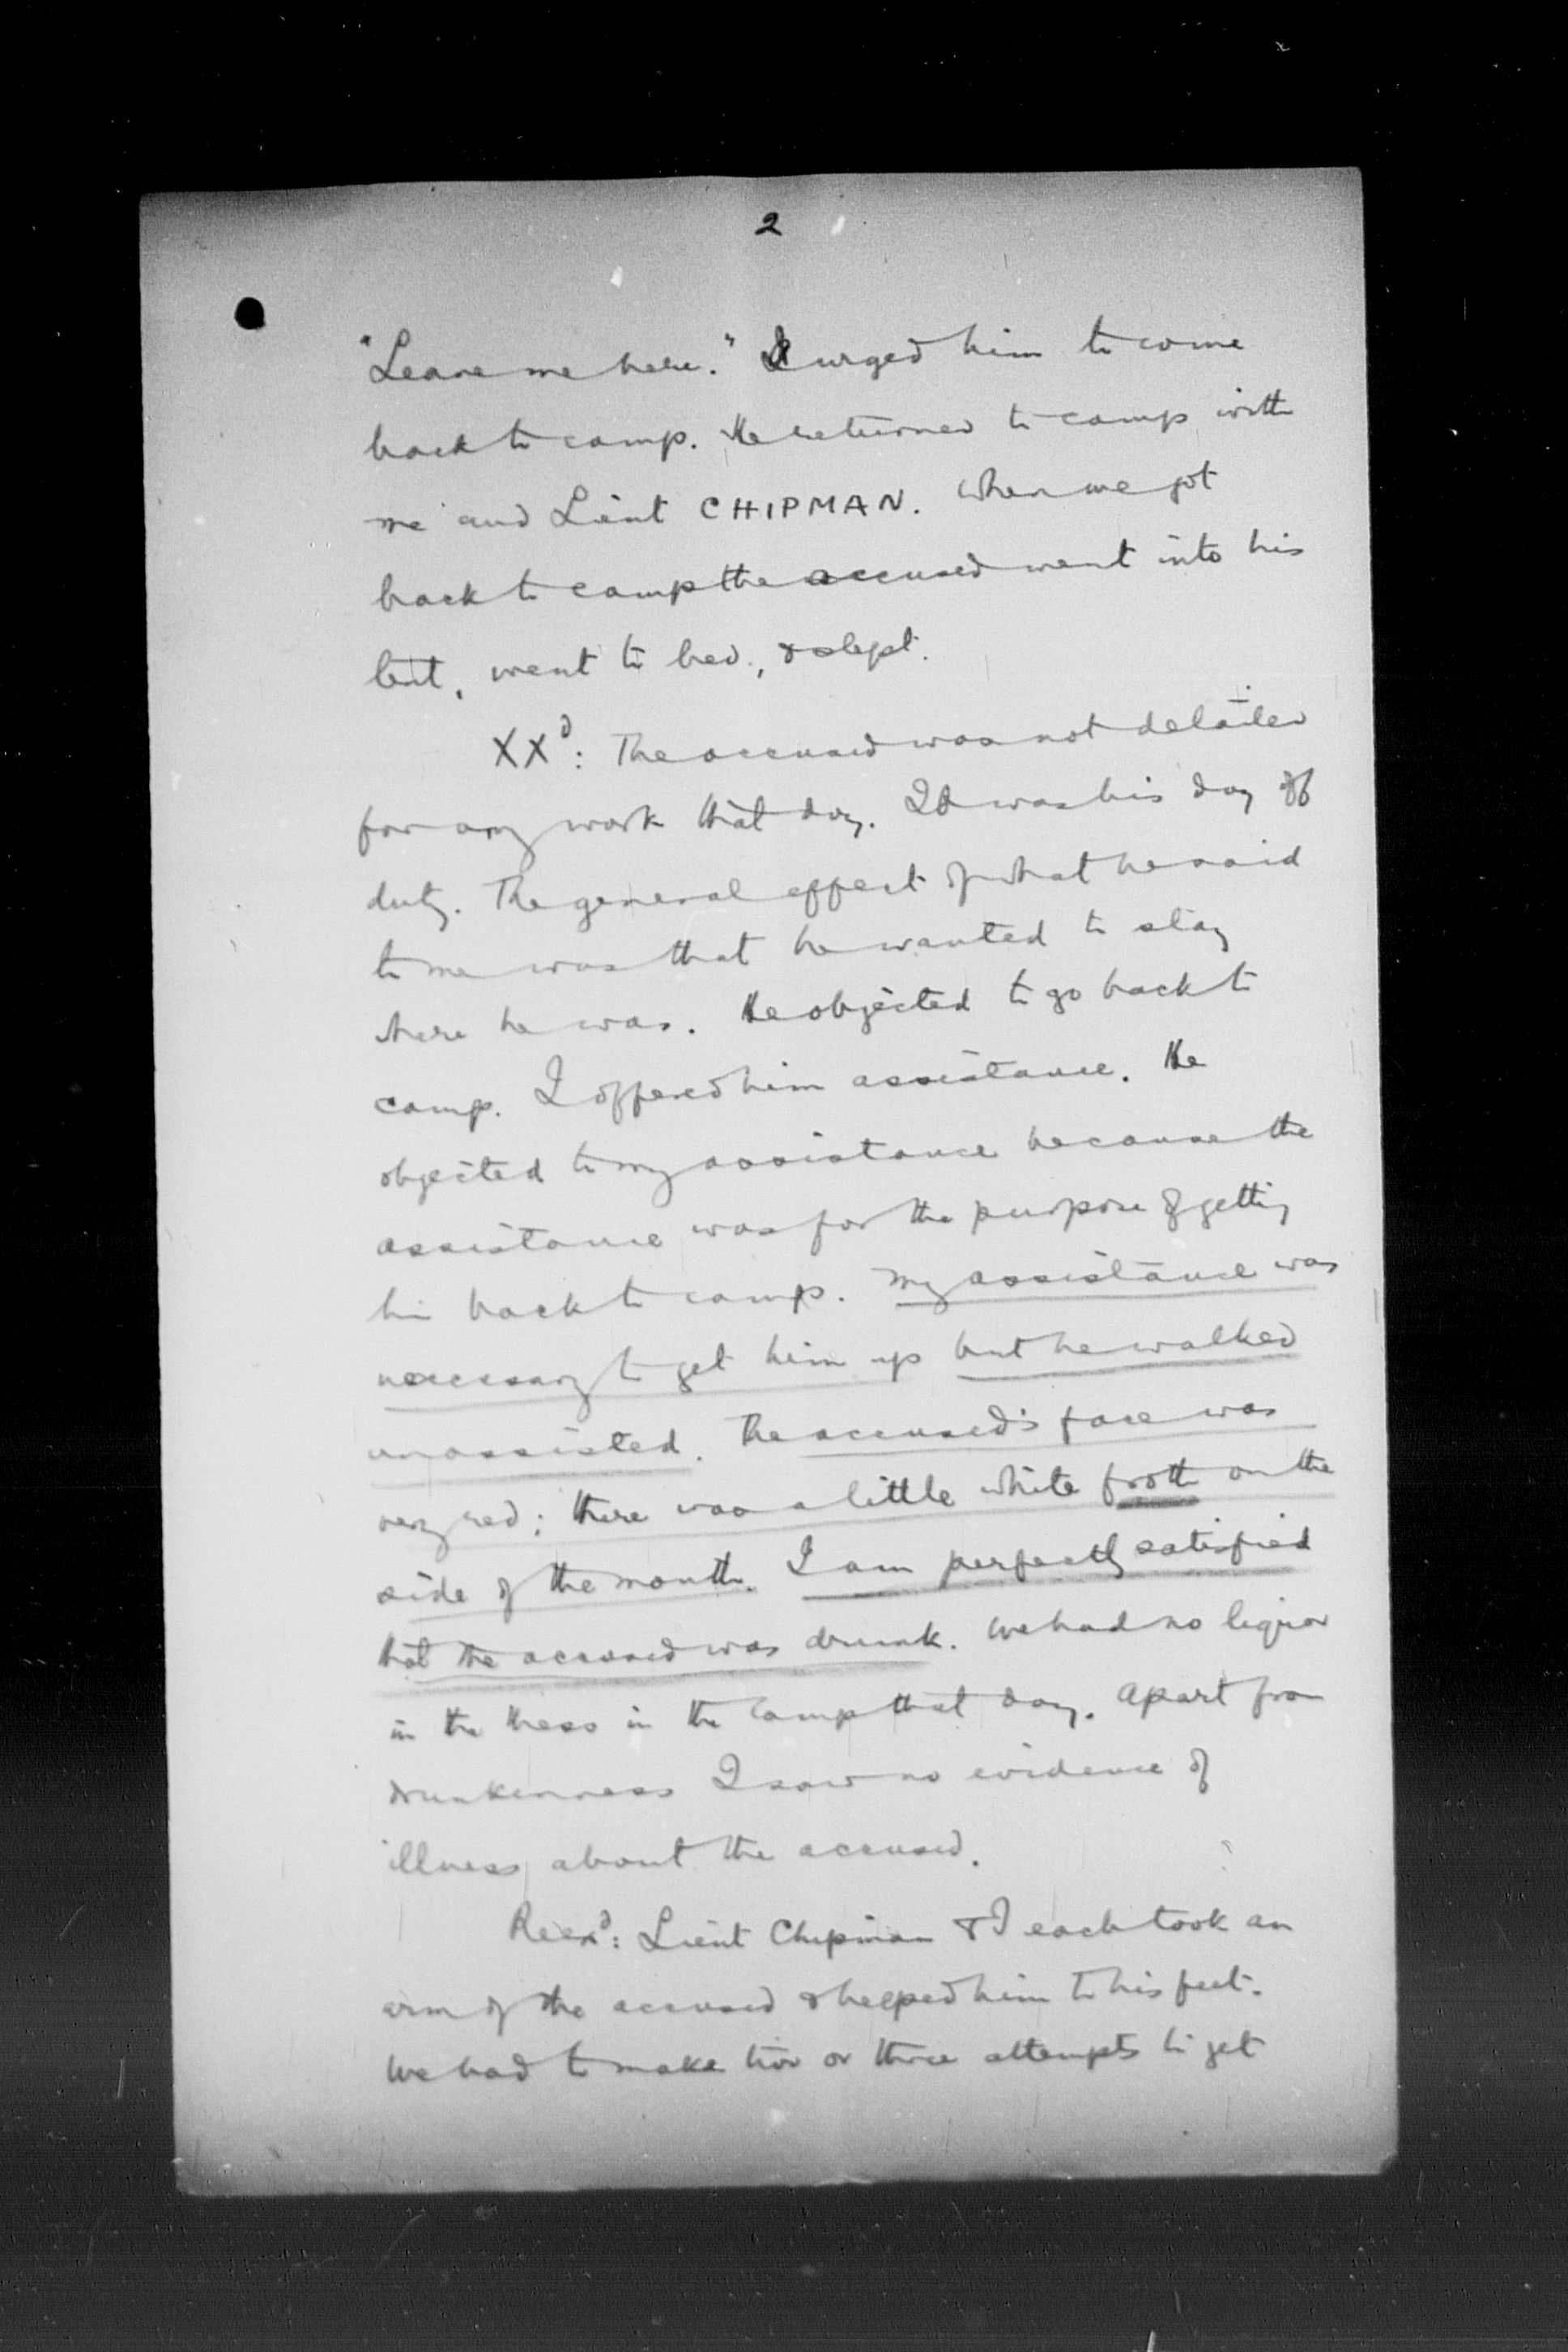 2
"Leave me here." I urged him to come
back to camp. He returned to camp with
me and Lieut CHIPMAN. When we got
back to camp the accused went into his
tent, went to bed, & slept.
XXd: The accused was not detailed
for any work that day. It was his day off
duty. The general effect of what he said
to me was that he wanted to stay
where he was. He objected to go back to
camp. I offered him assistance. He
objected to my assistance because the
assistance was for the purpose of getting
him back to camp. My assistance was
necessary to get him up but he walked
unassisted. The accused's face was
very red; there was a little white froth on the
side of the mouth. I am perfectly satisfied
that the accused was drunk. We had no liquor
in the Mess in the Camp that day. Apart from
drunkenness I saw no evidence of
illness about the accused.
Reexd: Lieut Chipman & I each took an
arm of the accused & helped him to his feet.
We had to make two or three attempts to get